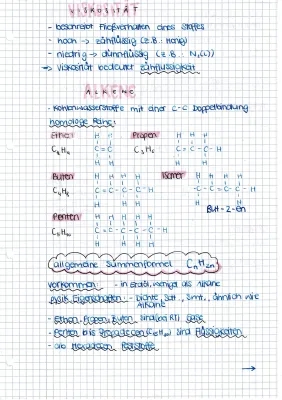 VISKOSITÄT
- beschreibt Fließverhalten eines Stoffes
- hoch → zähflüssig (z.B.: Honig)
- niedrig → dünnflüssig (z.B.: N₂(l))
→ Viskosität bedeutet zähflüssigkeit
ALKENE
- Kohlenwasserstoffe mit einer C-C Doppelbindung
homologe Reihe:
Ethen Propen
C=C C=C-C-H
Buten Isomer
C=C-C-C-H -C-C=C-C-H
But-2-en
Penten
C=C-C-C-C-H
allgemeine Summenformel CₙH₂ₙ
Vorkommen - in Erdöl, weniger als Alkane
physik. Eigenschaften - Dichte, Sdt., Smt., ähnlich wie Alkane
- Ethen, Propen, Buten sind bei RT Gase
- Penten bis sind Flüssigkeiten
- ab Feststoffe
→